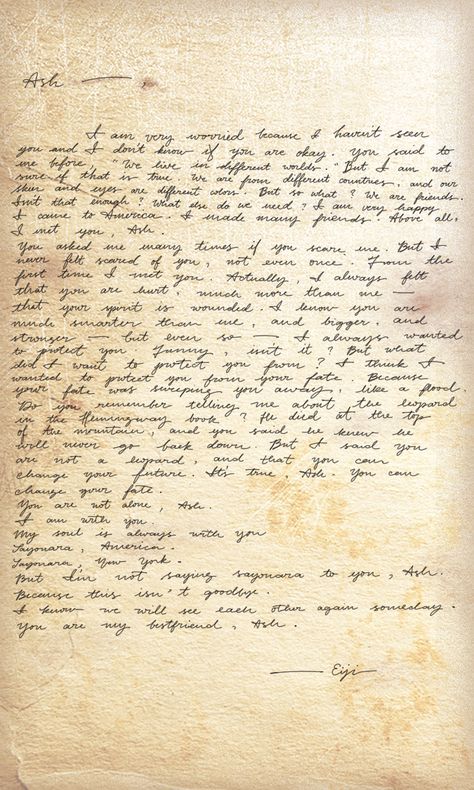 Ash —— ,
I am very worried because I haven't seen
you and I don't know if you are okay. You said to
me before, "We live in different worlds." But I am not
sure if that is true. We are from different countries, and our
skin and eyes are different colors. But so what? We are friends.
Isn't that enough? What else do we need? I am very happy
I came to America. I made many friends. Above all,
I met you, Ash.
You asked me many times if you scare me. But I
never felt scared of you, not even once. From the
first time I met you. Actually, I always felt
that you are hurt. much more than me —
that your spirit is wounded. I know you are
much smarter than me, and bigger. and
stronger — but even so — I always wanted
to protect you. Funny, isn't it? But what
did I want to protect you from? I think I
wanted to protect you from your fate. Because
your fate was sweeping you away, like a flood.
Do you remember telling me about the leopard
in the Hemingway book? He died at the top
of the mountain, and you said he knew he
will never go back down. But I said you
are not a leopard, and that you can
change your future. It's true, Ash. You can
change your fate.
You are not alone, Ash.
I am with you.
My soul is always with you
Sayonara, America.
Sayonara, New York.
But I'm not saying sayonara to you, Ash.
Because this isn't goodbye.
I know we will see each other again someday.
You are my bestfriend, Ash.
—— Eiji